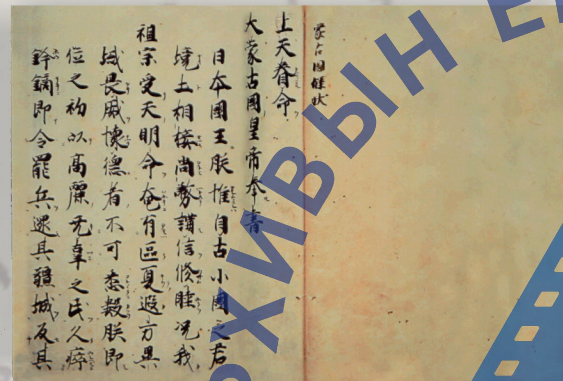 蒙古國牒状
上天眷命
大蒙古國皇帝奉書
日本國王朕惟自古小國之君
境土相接尚務講信修睦況我
祖宗受天明命奄有區夏遐方異
域畏威懷德者不可悉數朕即
位之初以高麗无辜之民久瘁
鋒鏑即令罷兵還其疆城反其
РХИВЫН Е